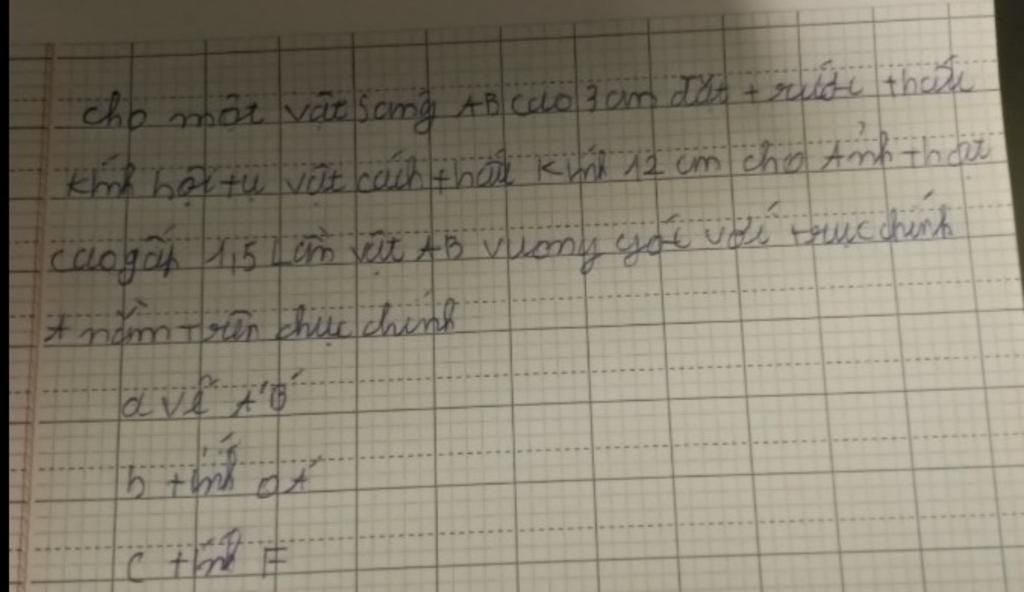 cho một vật sáng AB cao 3 cm đặt trước thấu
kính hội tụ vật cách thấu kính 12 cm cho Ảnh thật
cao gấp 1,5 Lần vật AB vuông góc với trục chính
A nằm trên chục chính
a vẽ A'B'
b tính OA'
c tính F